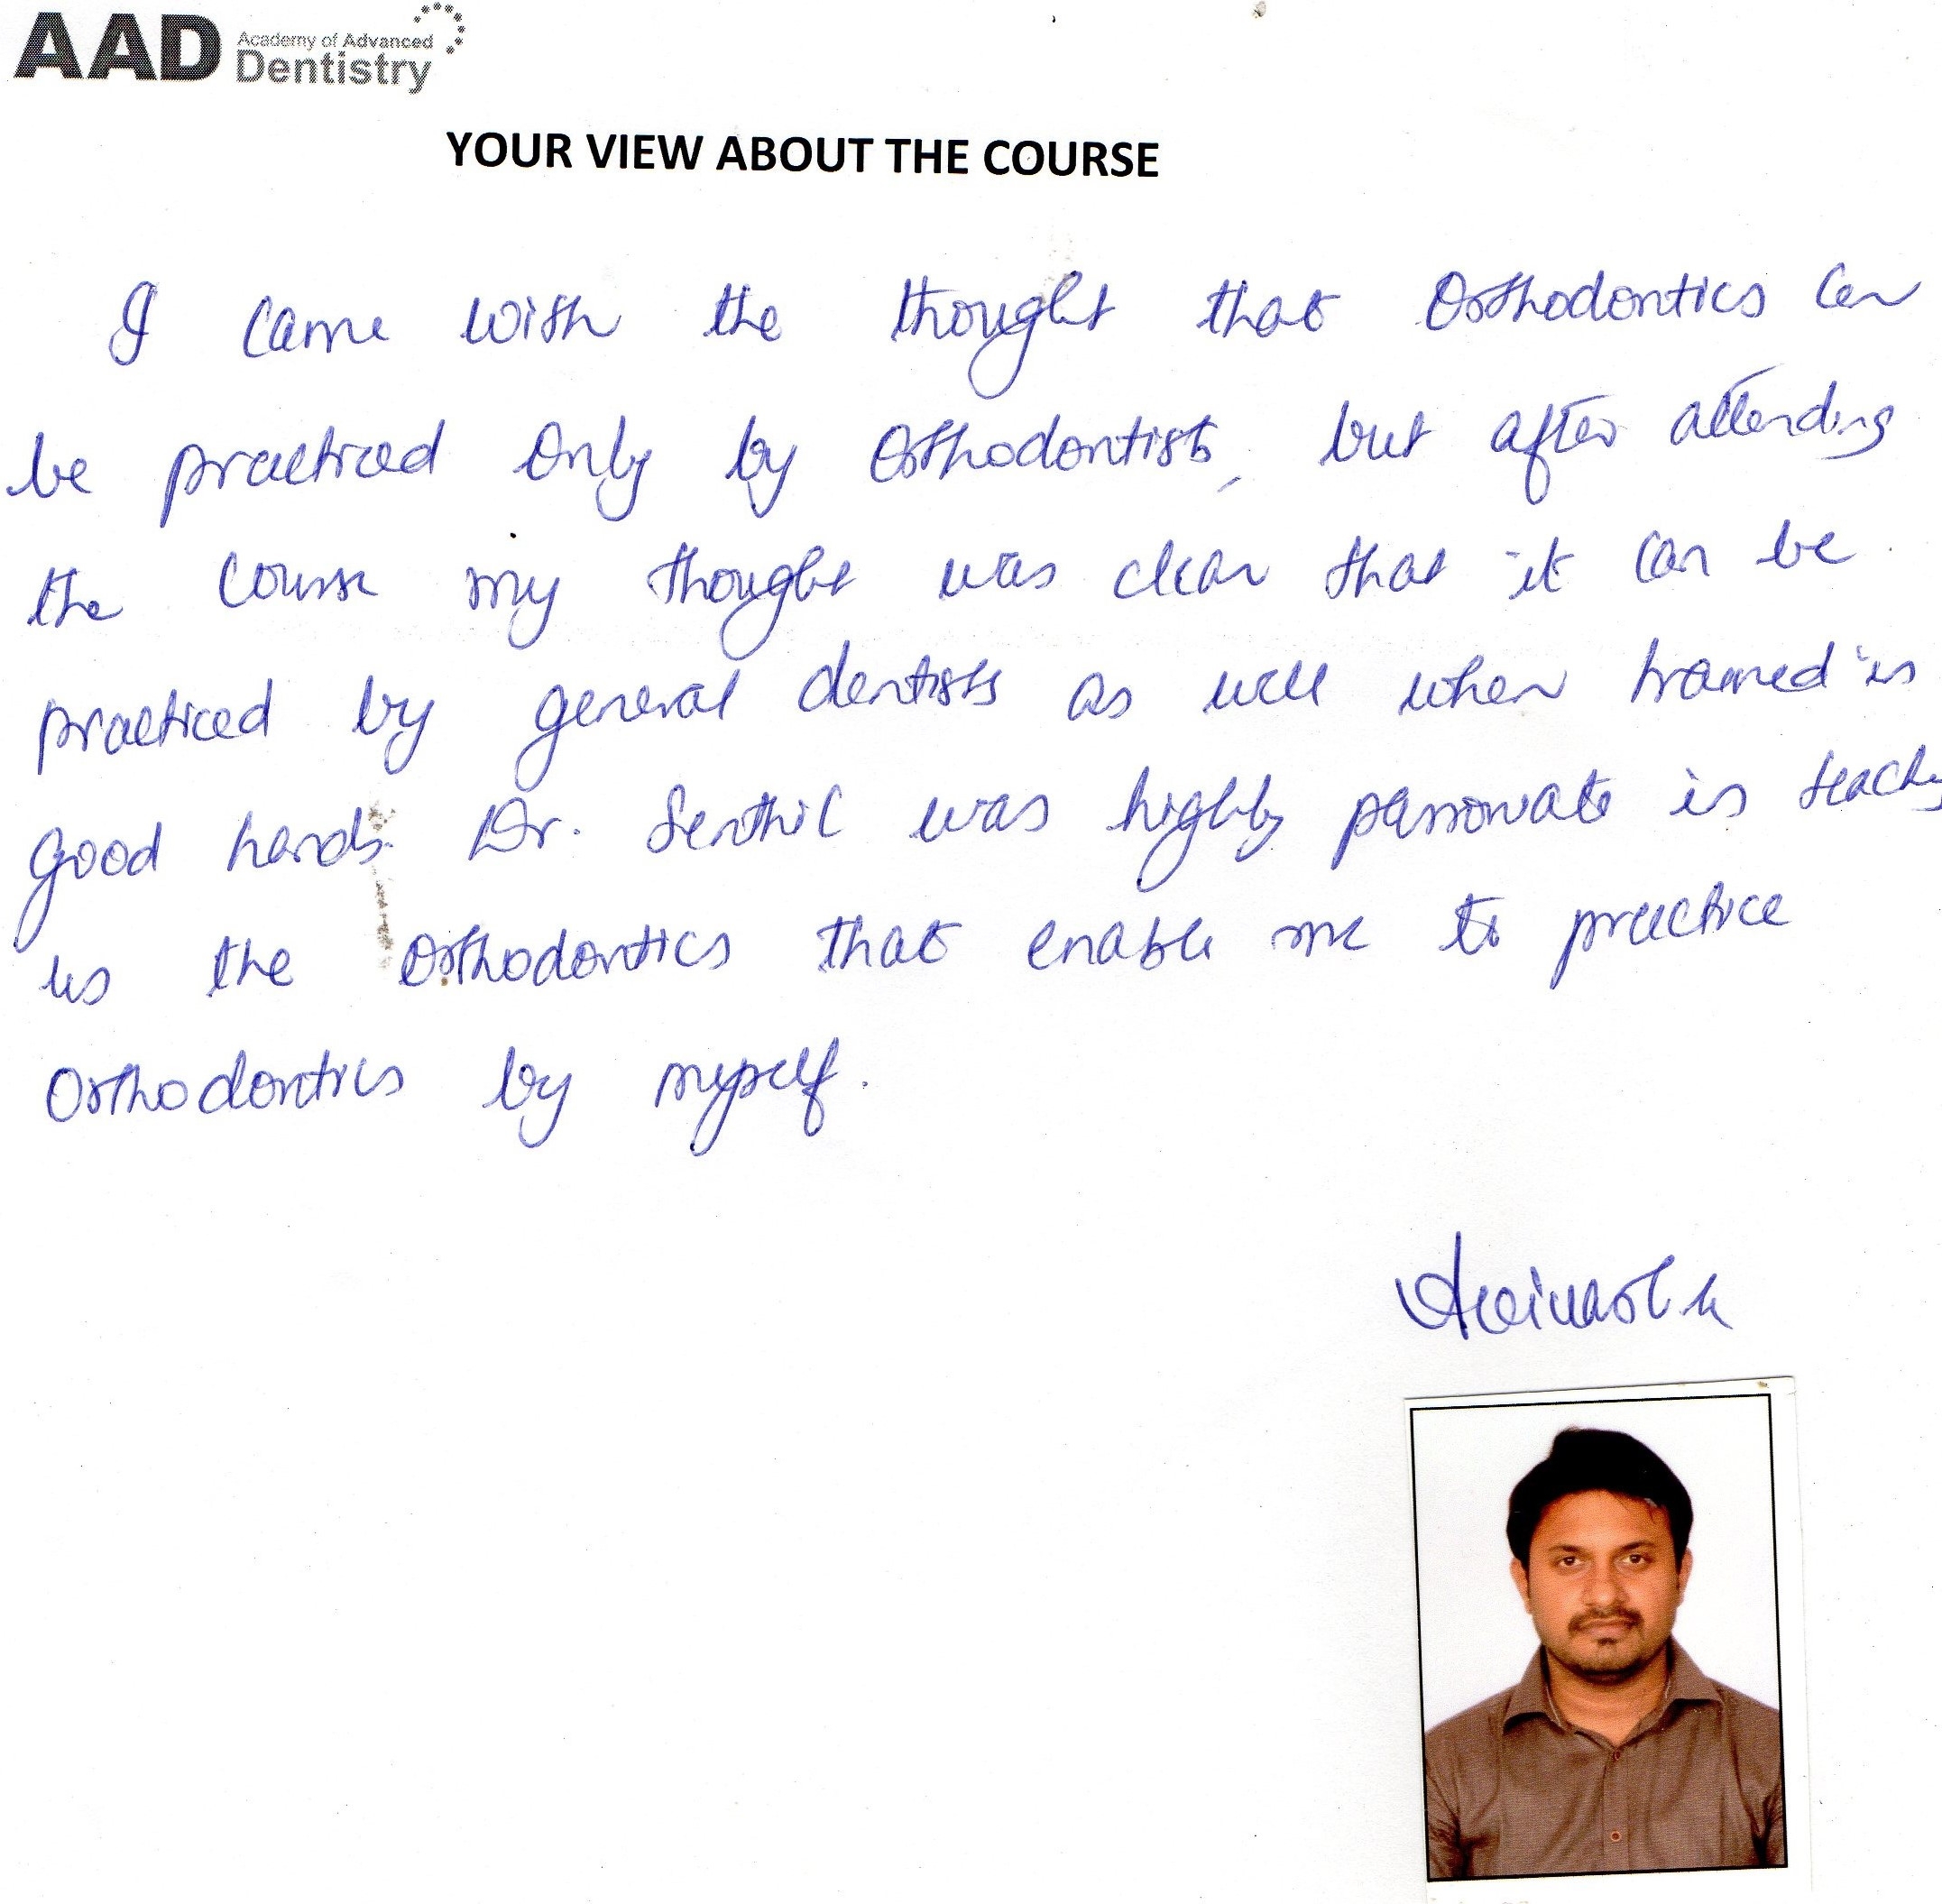 AAD Academy of Advanced
Dentistry
YOUR VIEW ABOUT THE COURSE
I came with the thought that Orthodontics can
be practiced only by Orthodontists, but after attending
the course my thought was clear that it can be
practiced by general dentists as well when trained in
good hands. Dr. Senthil was highly passionate in teaching
us the Orthodontics that enable me to practice
Orthodontics by myself.